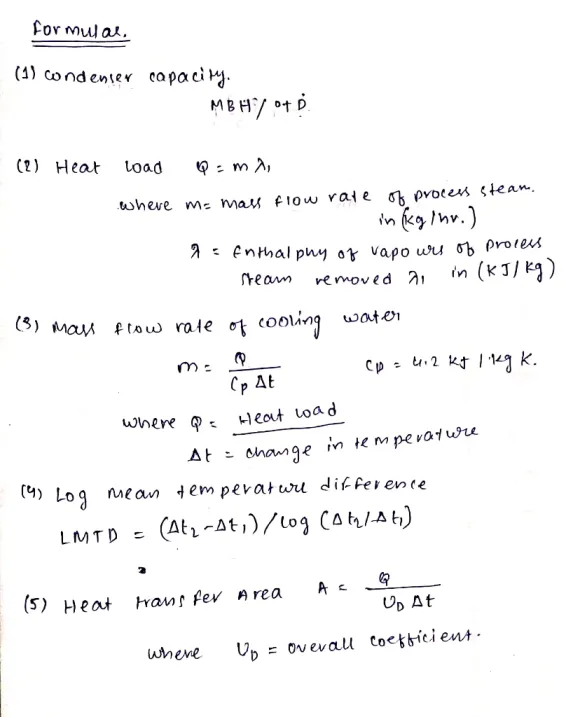 Formulas.
(1) Condenser capacity.
MBH% of D
(2) Heat load Q = m λ₁
where m= mass flow rate of process steam.
in (kg/hr.)
λ = Enthalphy of vapours of process
steam removed λ₁ in (KJ/kg)
(3) Mass flow rate of cooling water
m = Q / Cp Δt Cp = 4.2 kJ / kg K.
where Q = Heat load
Δt = change in temperature
(4) Log mean temperature difference
LMTD = (Δt₂-Δt₁)/log (Δt₂/Δt₁)
(5) Heat transfer Area A = Q / U_D Δt
where U_D = overall coefficient.